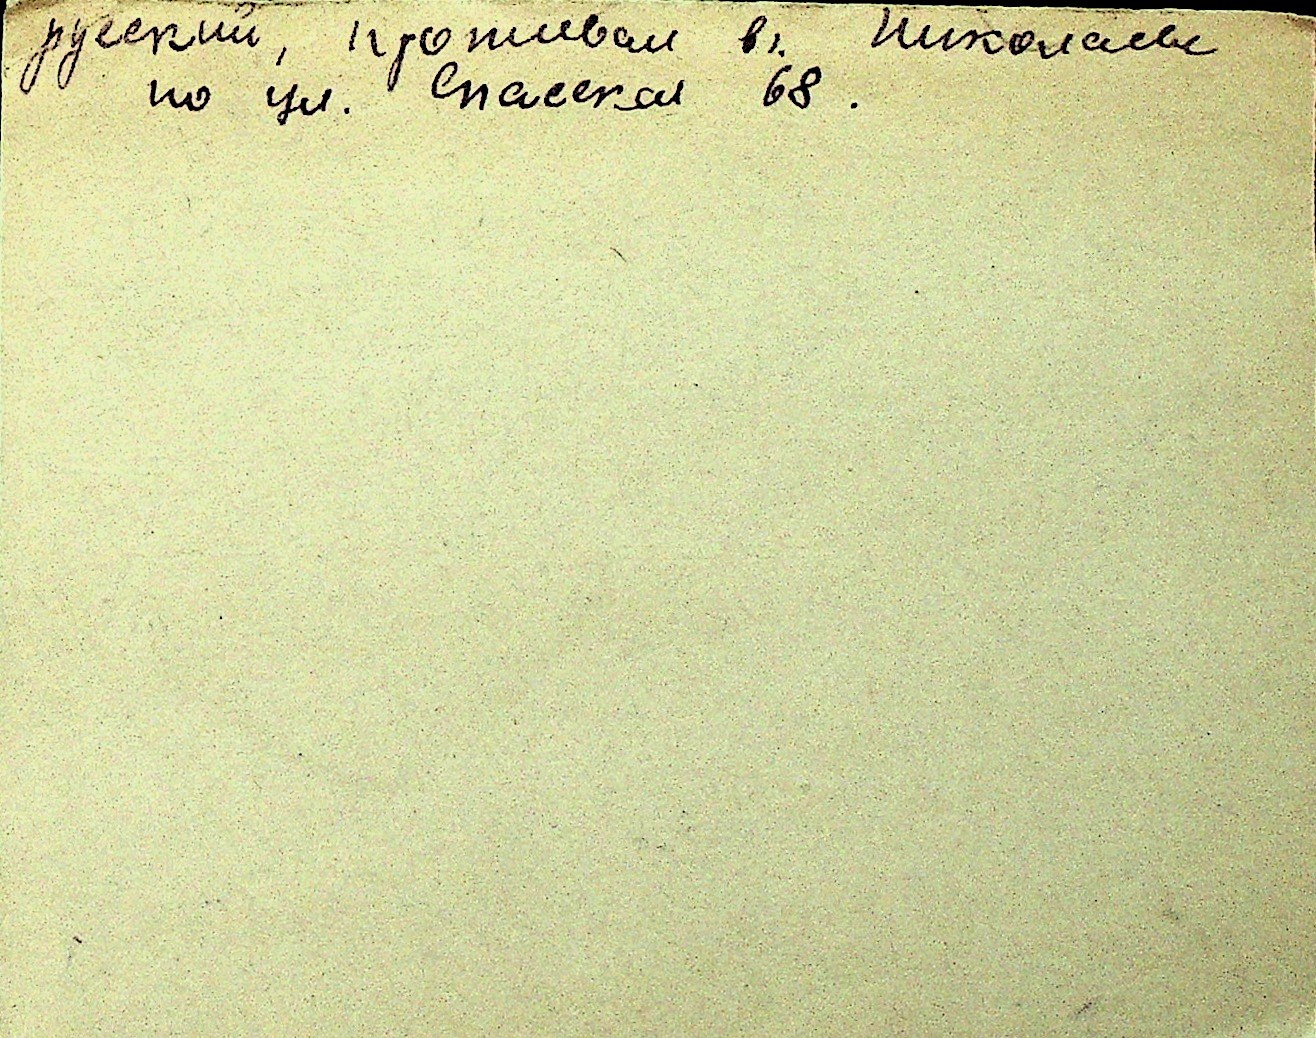 русский, проживал в г. Николаеве
по ул. Спасская 68.